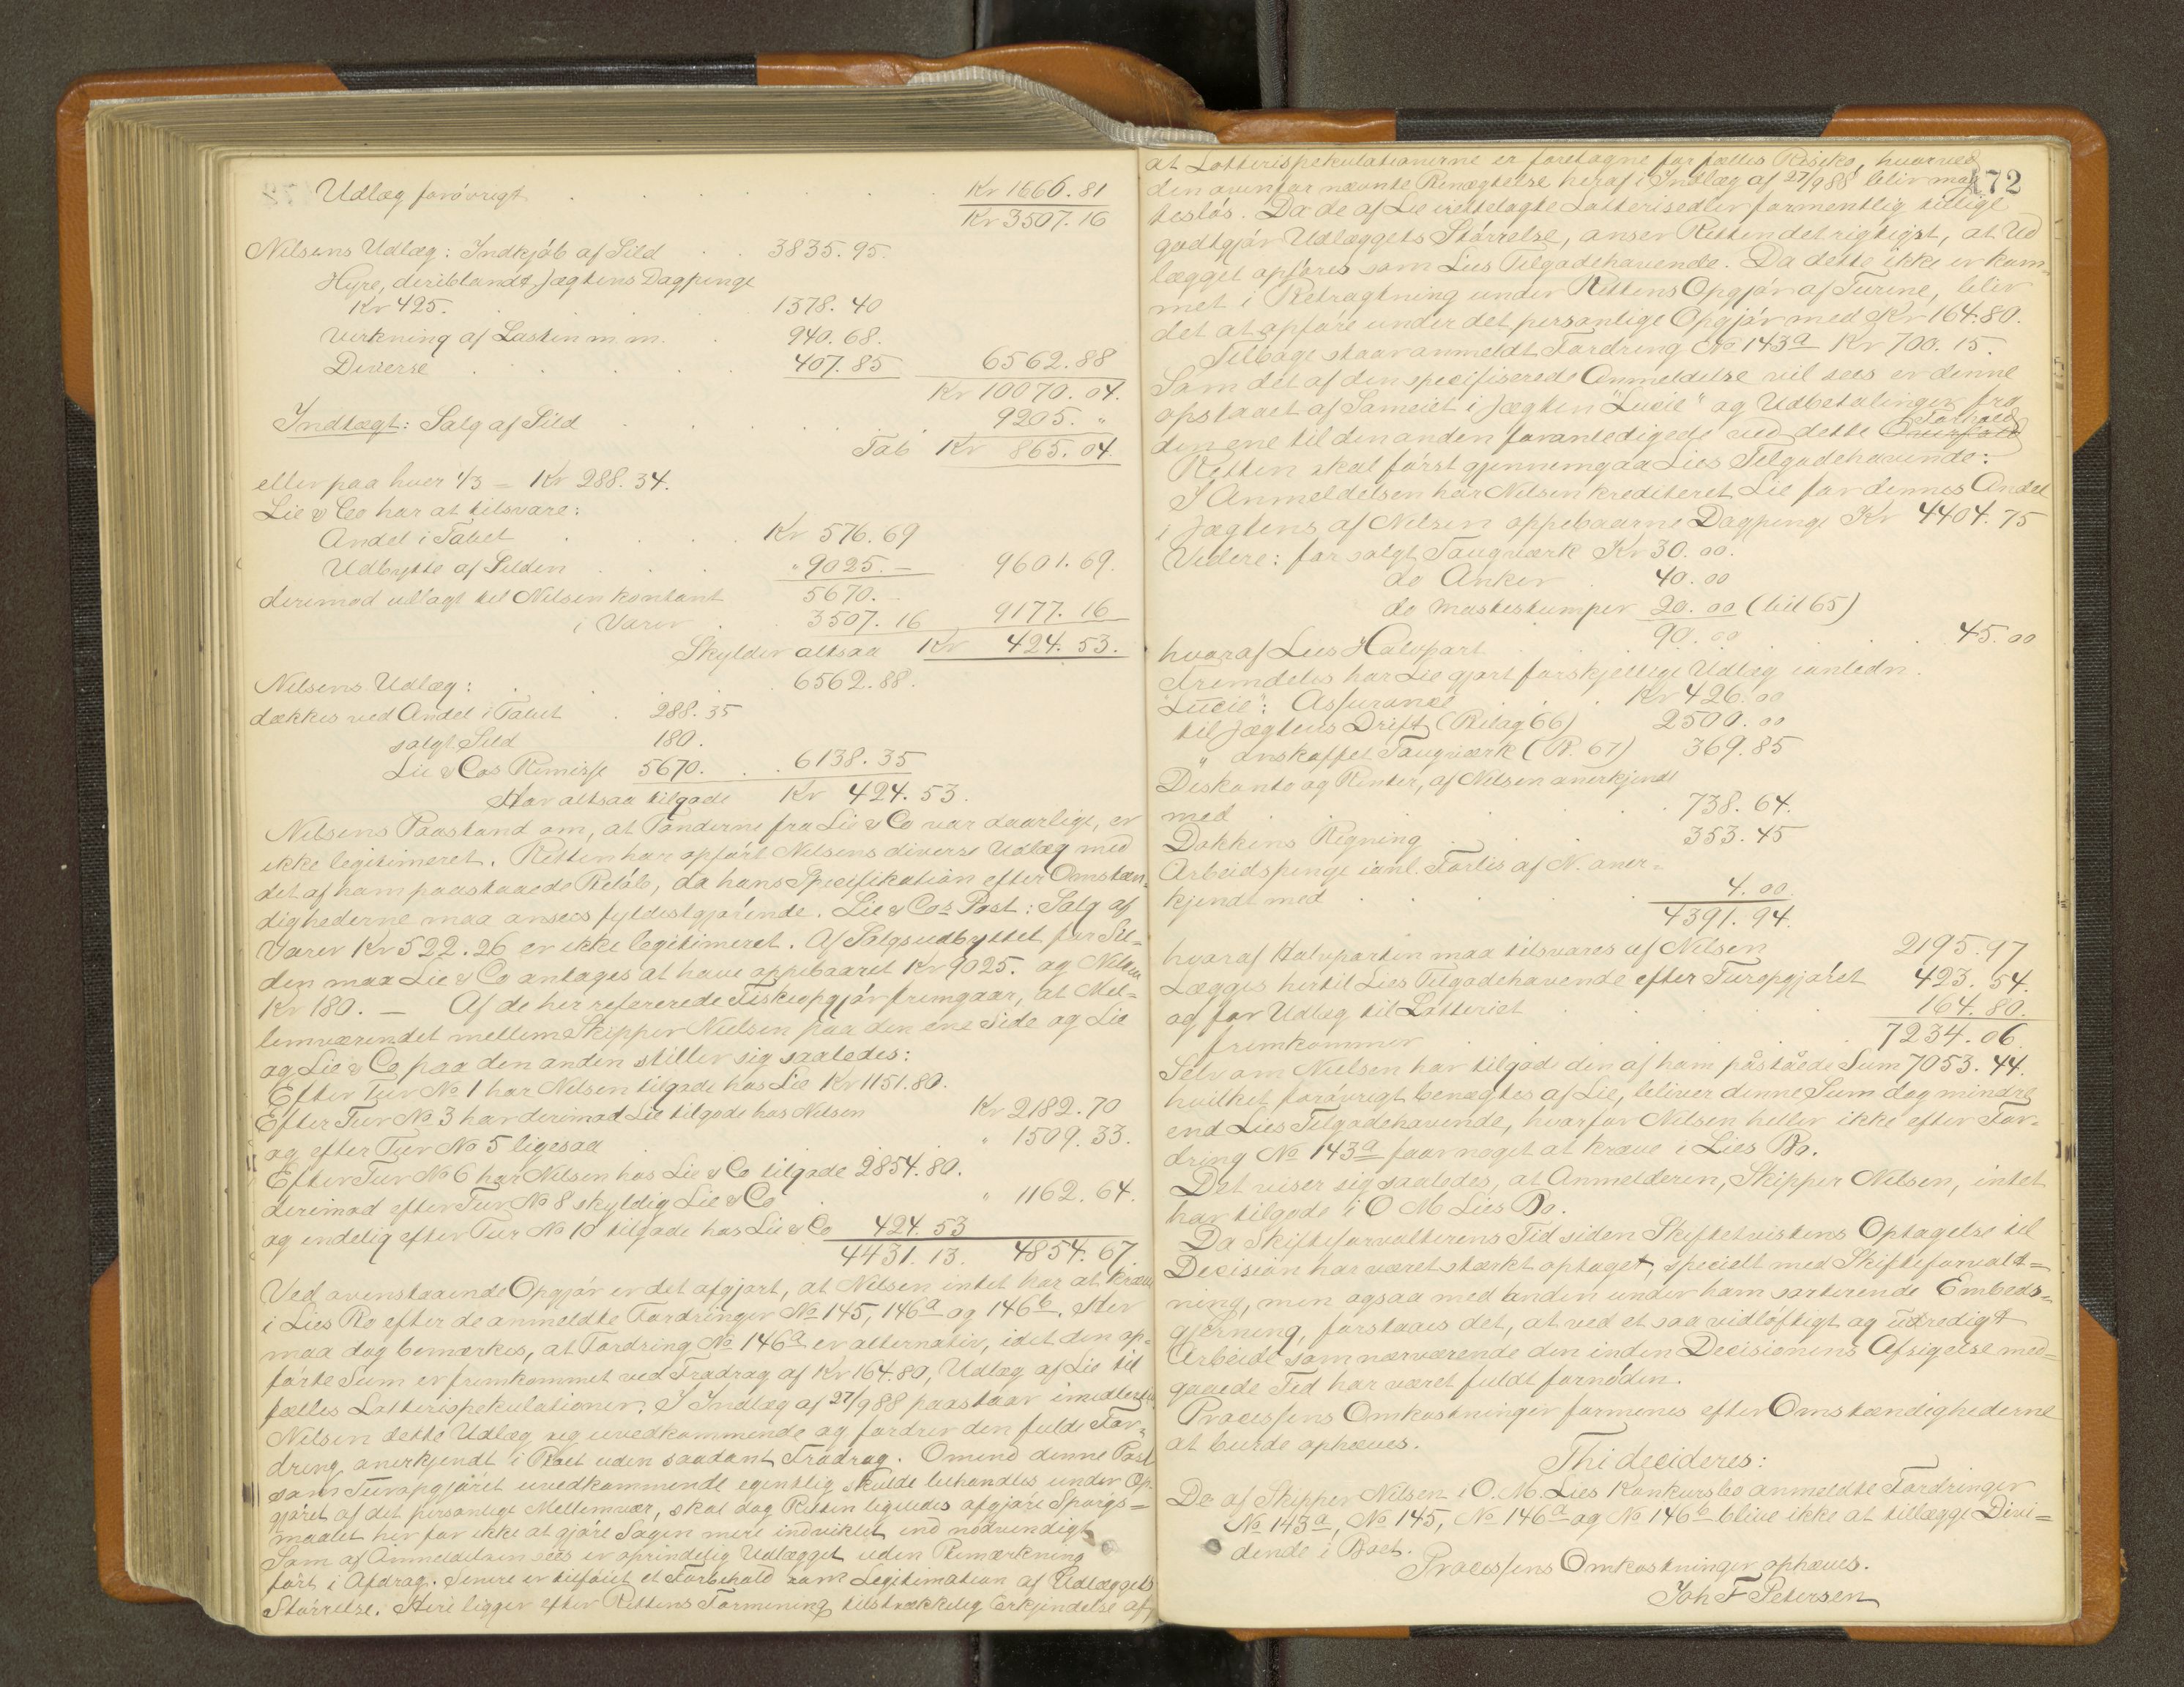 Udlæg forøvrigt . . . . . . Kr 1666.81
Kr 3507.16
Nilsens Udlæg: Indkjøb af Sild . . 3835.95.
Hyre, deriblandt Jægtens Dagpenge
Kr 425. 1378.40
Virkning af Lasten m. m. . 940.68.
Diverse . . . . . 407.85 6562.88
Kr 10070.04.
Indtægt: Salg af Sild . . . . . 9205. "
Tab Kr 865.04
eller paa hver 1/3 = Kr 288.34.
Lie & Co har at tilsvare:
Andel i Tabet . . . . Kr 576.69
Udbytte af Silden . . . " 9025.- 9601.69.
derimod utlagt til Nilsen kontant 5670.
i Varer . . 3507.16 9177.16
Skylder altsaa Kr 424.53.
Nilsens Udlæg: . . . . 6562.88.
dækkes ved Andel i Tabet . 288.35
solgt Sild 180.
Lie & Cos Rimisse 5670. . . 6138.35
Har altsaa tilgode Kr 424.53.
Nilsens Paastand om, at Tønderne fra Lie & Co var daarlige, er
ikke legitimeret. Retten har opført Nilsens diverse Udlæg med
det af ham paastaaede Beløb, da hans Specifikation efter Omstæn-
dighederne maa ansees fyldestgjørende. Lie & Cos Post: Salg af
Varer Kr 522.26 er ikke legitimeret. Af Salgsudbyttet for Sil-
den maa Lie & Co antages at have oppebaaret Kr 9025. og Nilsen
Kr 180. — Af de her refererede Fiskeopgjør fremgaar, at Mel-
lemværendet mellem Skipper Nielsen paa den ene Side og Lie
og Lie & Co paa den anden stiller sig saaledes:
Efter Tur No 1 har Nilsen tilgode hos Lie Kr 1151.80.
Efter Tur No 3 har derimod Lie tilgode hos Nilsen Kr 2182.70
og efter Tur No 5 ligesaa . . . . " 1509.33.
Efter Tur No 6 har Nilsen hos Lie & Co tilgode 2854.80.
derimod efter Tur No 8 skyldig Lie & Co . . " 1162.64.
og endelig efter Tur No 10 tilgode hos Lie & Co 424.53
4431.13. 4854.67.
Ved ovenstaaende Opgjør er det afgjort, at Nilsen intet har at kræve
i Lies Bo efter de anmeldte Fordringer No 145, 146a og 146b. Her
maa dog bemærkes, at Fordring No 146a er alternativ, idet den op-
førte Sum er fremkommet ved Fradrag af Kr 164.80, Udlæg af Lie til
fælles Lotterispekulationer. I Indlæg af 27/9 88 paastaar imidlertid
Nilsen dette Udlæg sig uvedkommende og fordrer den fulde For-
dring anerkjendt i Boet uden saadant Fradrag. Omend denne Post
som Turopgjøret uvedkommende egentlig skulde behandles under Op-
gjøret af det personlige Mellemvær, skal dog Retten ligeledes afgjøre Spørgs=
maalet her for ikke at gjøre Sagen mere indviklet end nødvendigt
Som af Anmeldelsen sees er oprindelig Udlægget uden Bemærkning
ført i Afdrag. Senere er tilføiet et Forbehold som Legitimation af Udlæggets
Størrelse. Heri ligger efter Rettens Formening tilstrækkelig Erkjendelse af,
172
at Lotterispekulationerne er foretagne for fælles Risiko, hvorved
den ovenfor nævnte Benægtelse heraf i Indlæg af 27/9 88 bliver mag-
tesløs. Da de af Lie irettelagte Lotterisedler formentlig tillige
godtgjør Udlæggets Størrelse, anser Retten det rigtigst, at Ud
lægget opføres som Lies Tilgodehavende. Da dette ikke er kom=
met i Betragtning under Rettens Opgjør af Turene, bliver
det at opføre under det personlige Opgjør med Kr 164.80.
Tilbage staar anmeldt Fordring No 143a Kr 700.15.
Som det af den specifiserede Anmeldelse vil sees er denne
opstaaet af Sameiet i Jægten "Lucie" og Udbetalinger fra
den ene til den anden foranledigede ved dette Forhold
Retten skal først gjennemgaa Lies Tilgodehavende:
I Anmeldelsen har Nilsen krediteret Lie for dennes Andel
i Jægtens af Nilsen oppebaarne Dagpenge Kr 4404.75
Videre: for solgt Taugværk Kr 30.00.
do Anker . 40.00
do Mastestumper 20.00 (bil 65)
90.00
hvoraf Lies Halvpart . . . . . . 45.00
Fremdeles har Lie gjort forskjellige Udlæg i anledn.
"Lucie": Assurance . . . Kr 426.00
til Jægtens Drift (Bilag 66) 2500.00
" anskaffet Taugværk (B. 67) 369.85
Diskonto og Renter, af Nilsen anerkjendt
med . . . . . 738.64.
Dokkens Regning . . . . 353.45
Arbeidspenge i anl. Forlis af N. aner=
kjendt med . . . . 4.00.
4391.94.
hvoraf Halvparten maa tilsvares af Nilsen 2195.97
Lægges hertil Lies Tilgodehavende efter Turopgjøret 423.54.
og for Udlæg til Lotteriet . . . . 164.80.
fremkommer . . . . . 7234.06.
Selv om Nielsen har tilgode den af ham påståede Sum 7053.44.
hvilket forøvrigt benægtes af Lie, bliver denne Sum dog mindre
end Lies Tilgodehavende, hvorfor Nilsen heller ikke efter For-
dring No 143a faar noget at kræve i Lies Bo.
Det viser sig saaledes, at Anmelderen, Skipper Nilsen, intet
har tilgode i O M Lies Bo.
Da Skifteforvalterens Tid siden Skiftetvistens Optagelse til
Decision har været stærkt optaget, specielt med Skifteforvalt=
ning, men ogsaa med anden under ham sorterende Embeds=
gjerning, forstaaes det, at ved et saa vidløftigt og udredigt
Arbeide som nærværende den inden Decisionens Afsigelse med=
gaaede Tid har været fuldt fornøden.
Processens Omkostninger formenes efter Omstændighederne
at burde ophæves.
Thi decideres:
De af Skipper Nilsen i O. M. Lies Konkursbo anmeldte Fordringer
No 143a, No 145, No 146a og No 146b blive ikke at tillægge Divi=
dende i Boet.
Processens Omkostninger ophæves.
Joh F Petersen